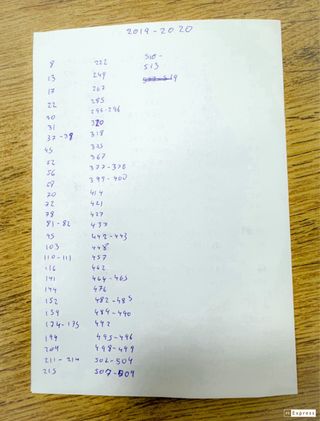 2019-2020
8
13
17
22
30
31
37-38
45
52
56
68
70
72
78
81-82
95
103
110-111
116
141
144
152
159
174-175
199
204
211-214
215
222
249
267
285
295-296
320
318
335
367
377-378
399-400
414
421
427
437
442-443
448
457
462
464-465
476
482-483
489-490
492
495-496
498-499
502-504
507-509
510-
513
Express